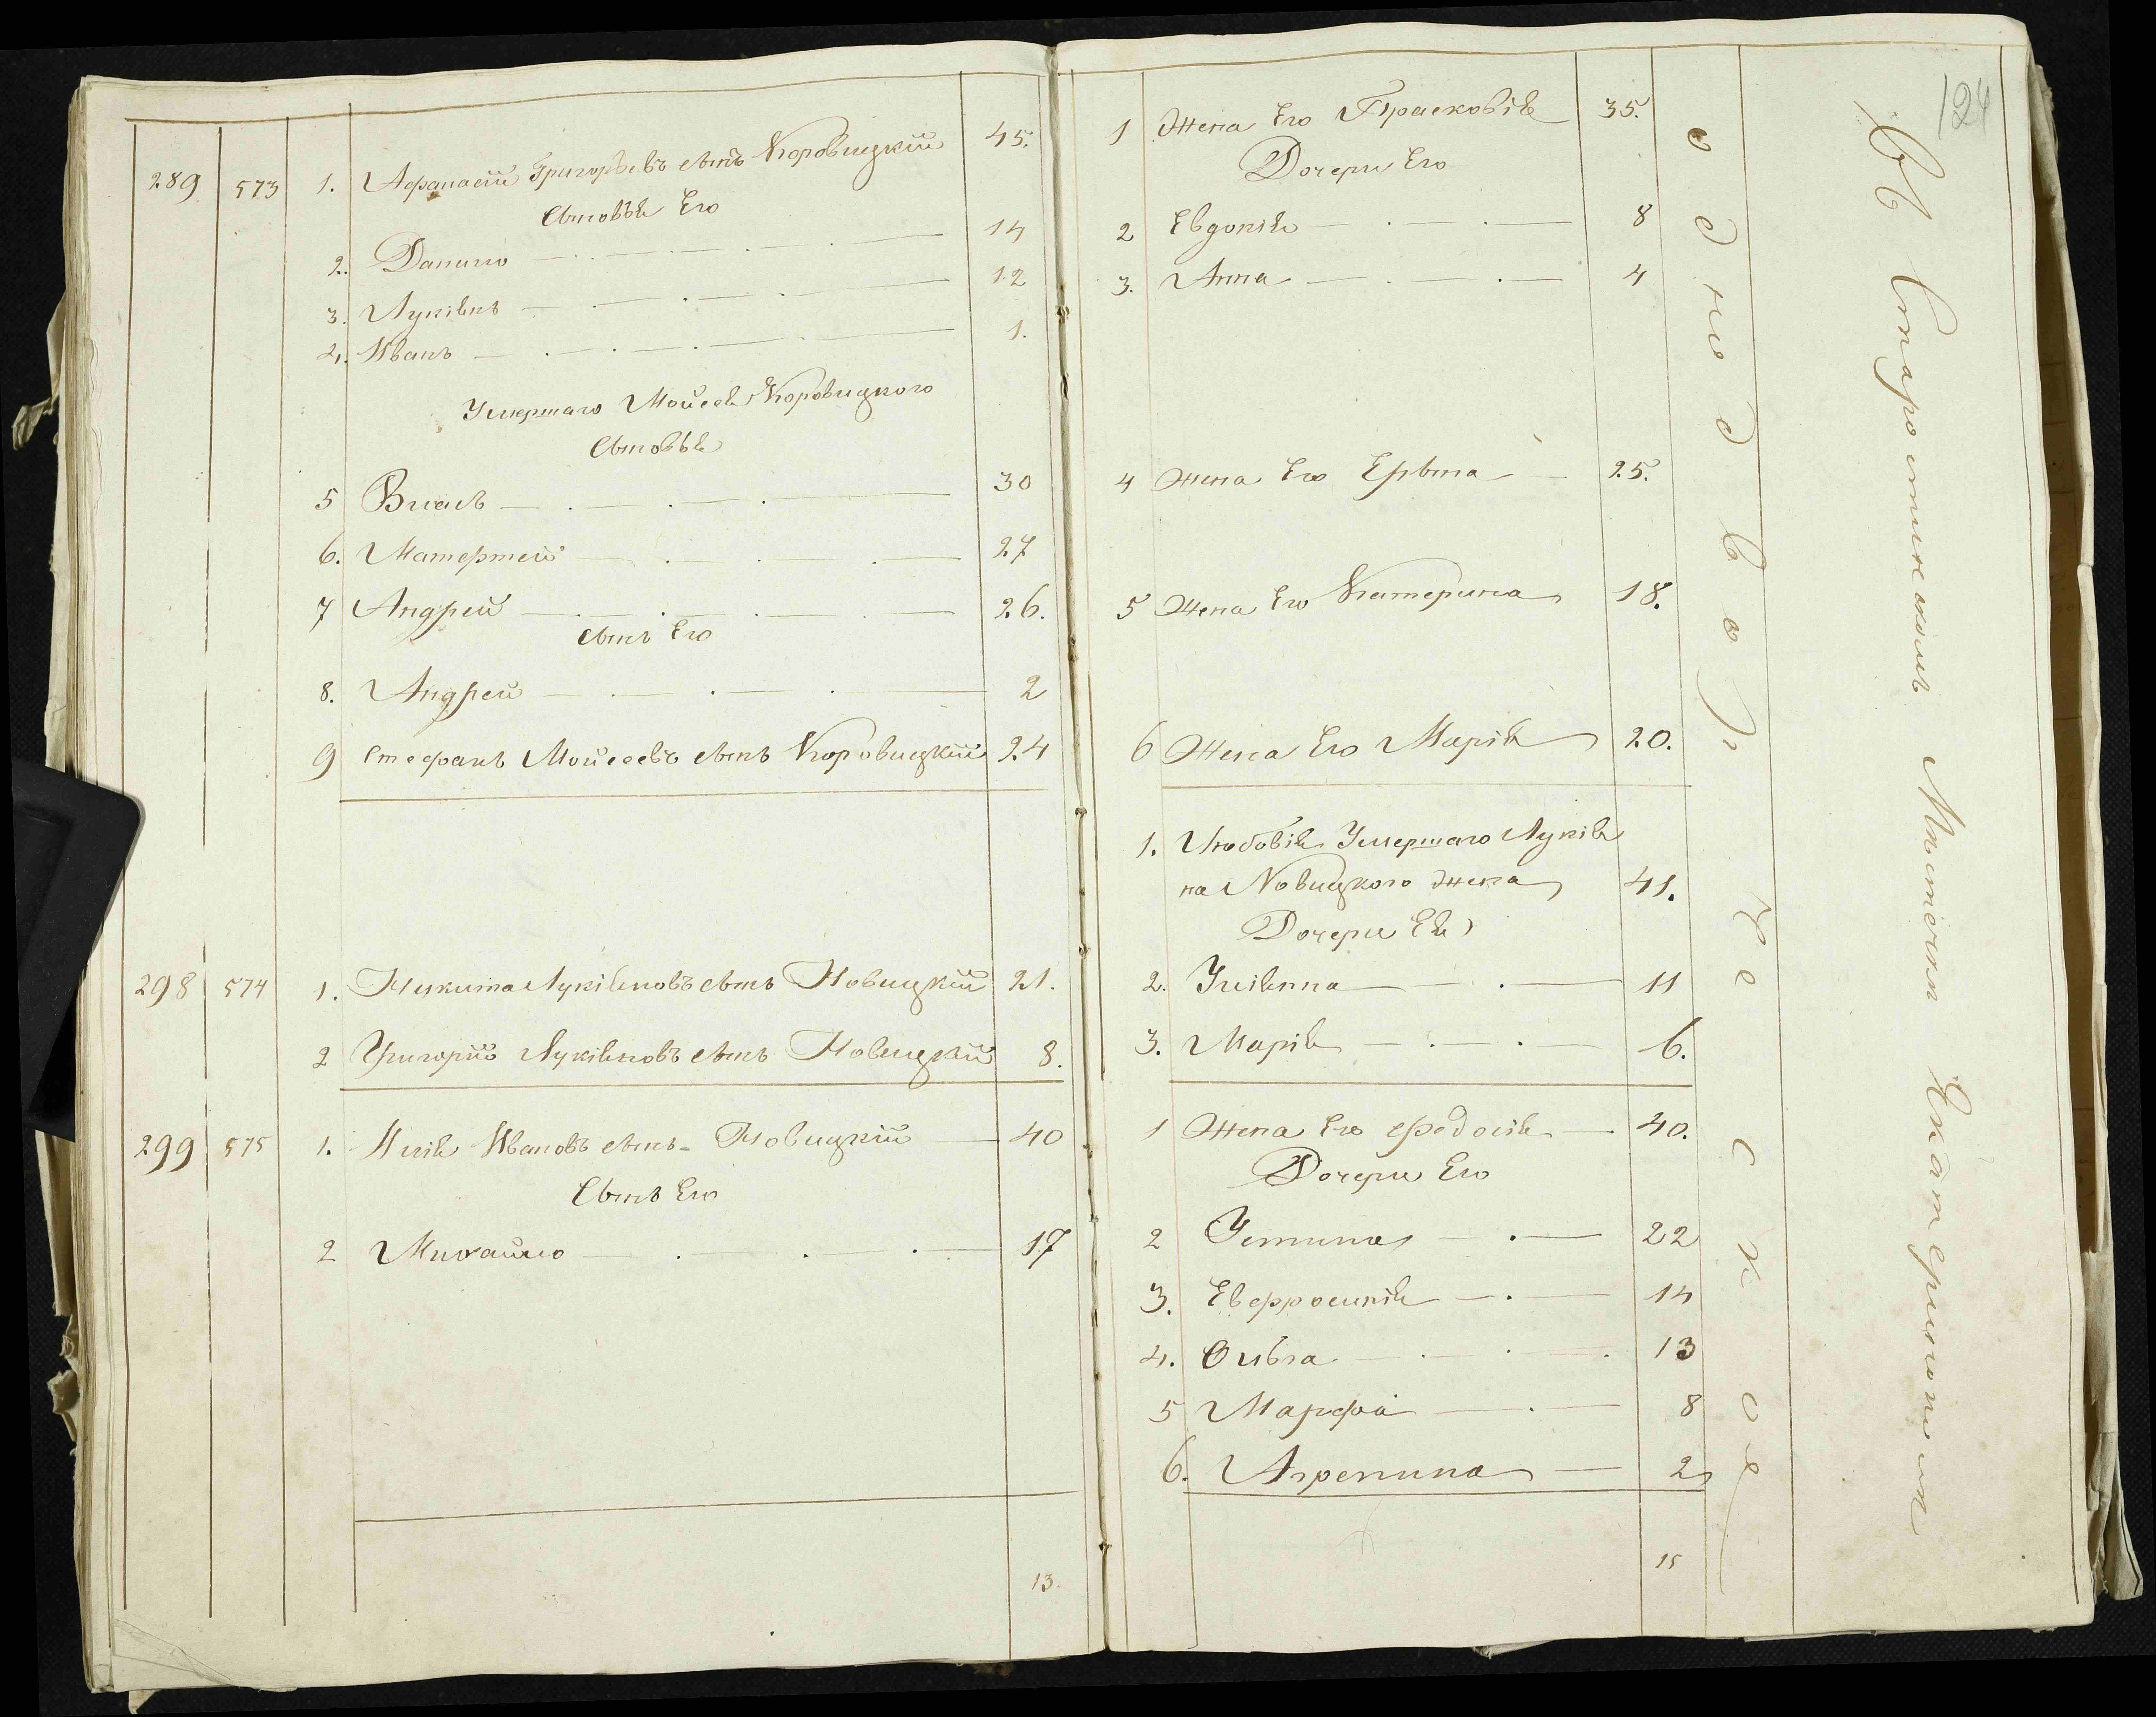 289 573 1. Афанасій Григорьевъ сынъ Коровицкій 45.
Сыновья Его
2. Данило 14
3. Лукіянъ 12
4. Иванъ 1.
Умершаго Мойсея Коровицкого
Сыновья
5 Власъ 30
6. Матертей 27
7 Андрей 26.
сынъ Его
8. Андрей 2
9 Стефанъ Мойсеевъ сынъ Коровицкій 24
298 574 1. Никита Лукіяновъ сынъ Новицкій 21.
2 Григорій Лукіяновъ сынъ Новицкій 8.
299 575 1. Илія Ивановъ сынъ Новицкій 40
Сынъ Его
2 Михайло 17
13.
124
1 Жена Его Прасковія 35.
Дочери Его
2 Евдокія 8
3. Анна 4
4 Жена Его 25.
5 Жена Его Катерина 18.
6 Жена Его Марія 20.
1. Любовія Умершаго Лукія
на Новицкого жена 41.
Дочери Ея
2. Уліянна 11
3. Марія 6.
1 Жена Его Феодосія 40.
Дочери Его
2 Устина 22
3. Евфросинія 14
4. Ольга 13
5 Марфа 8
6. Агрепина 2
15
однодворческое
Въ Старостинскомъ Мѣстечкѣ